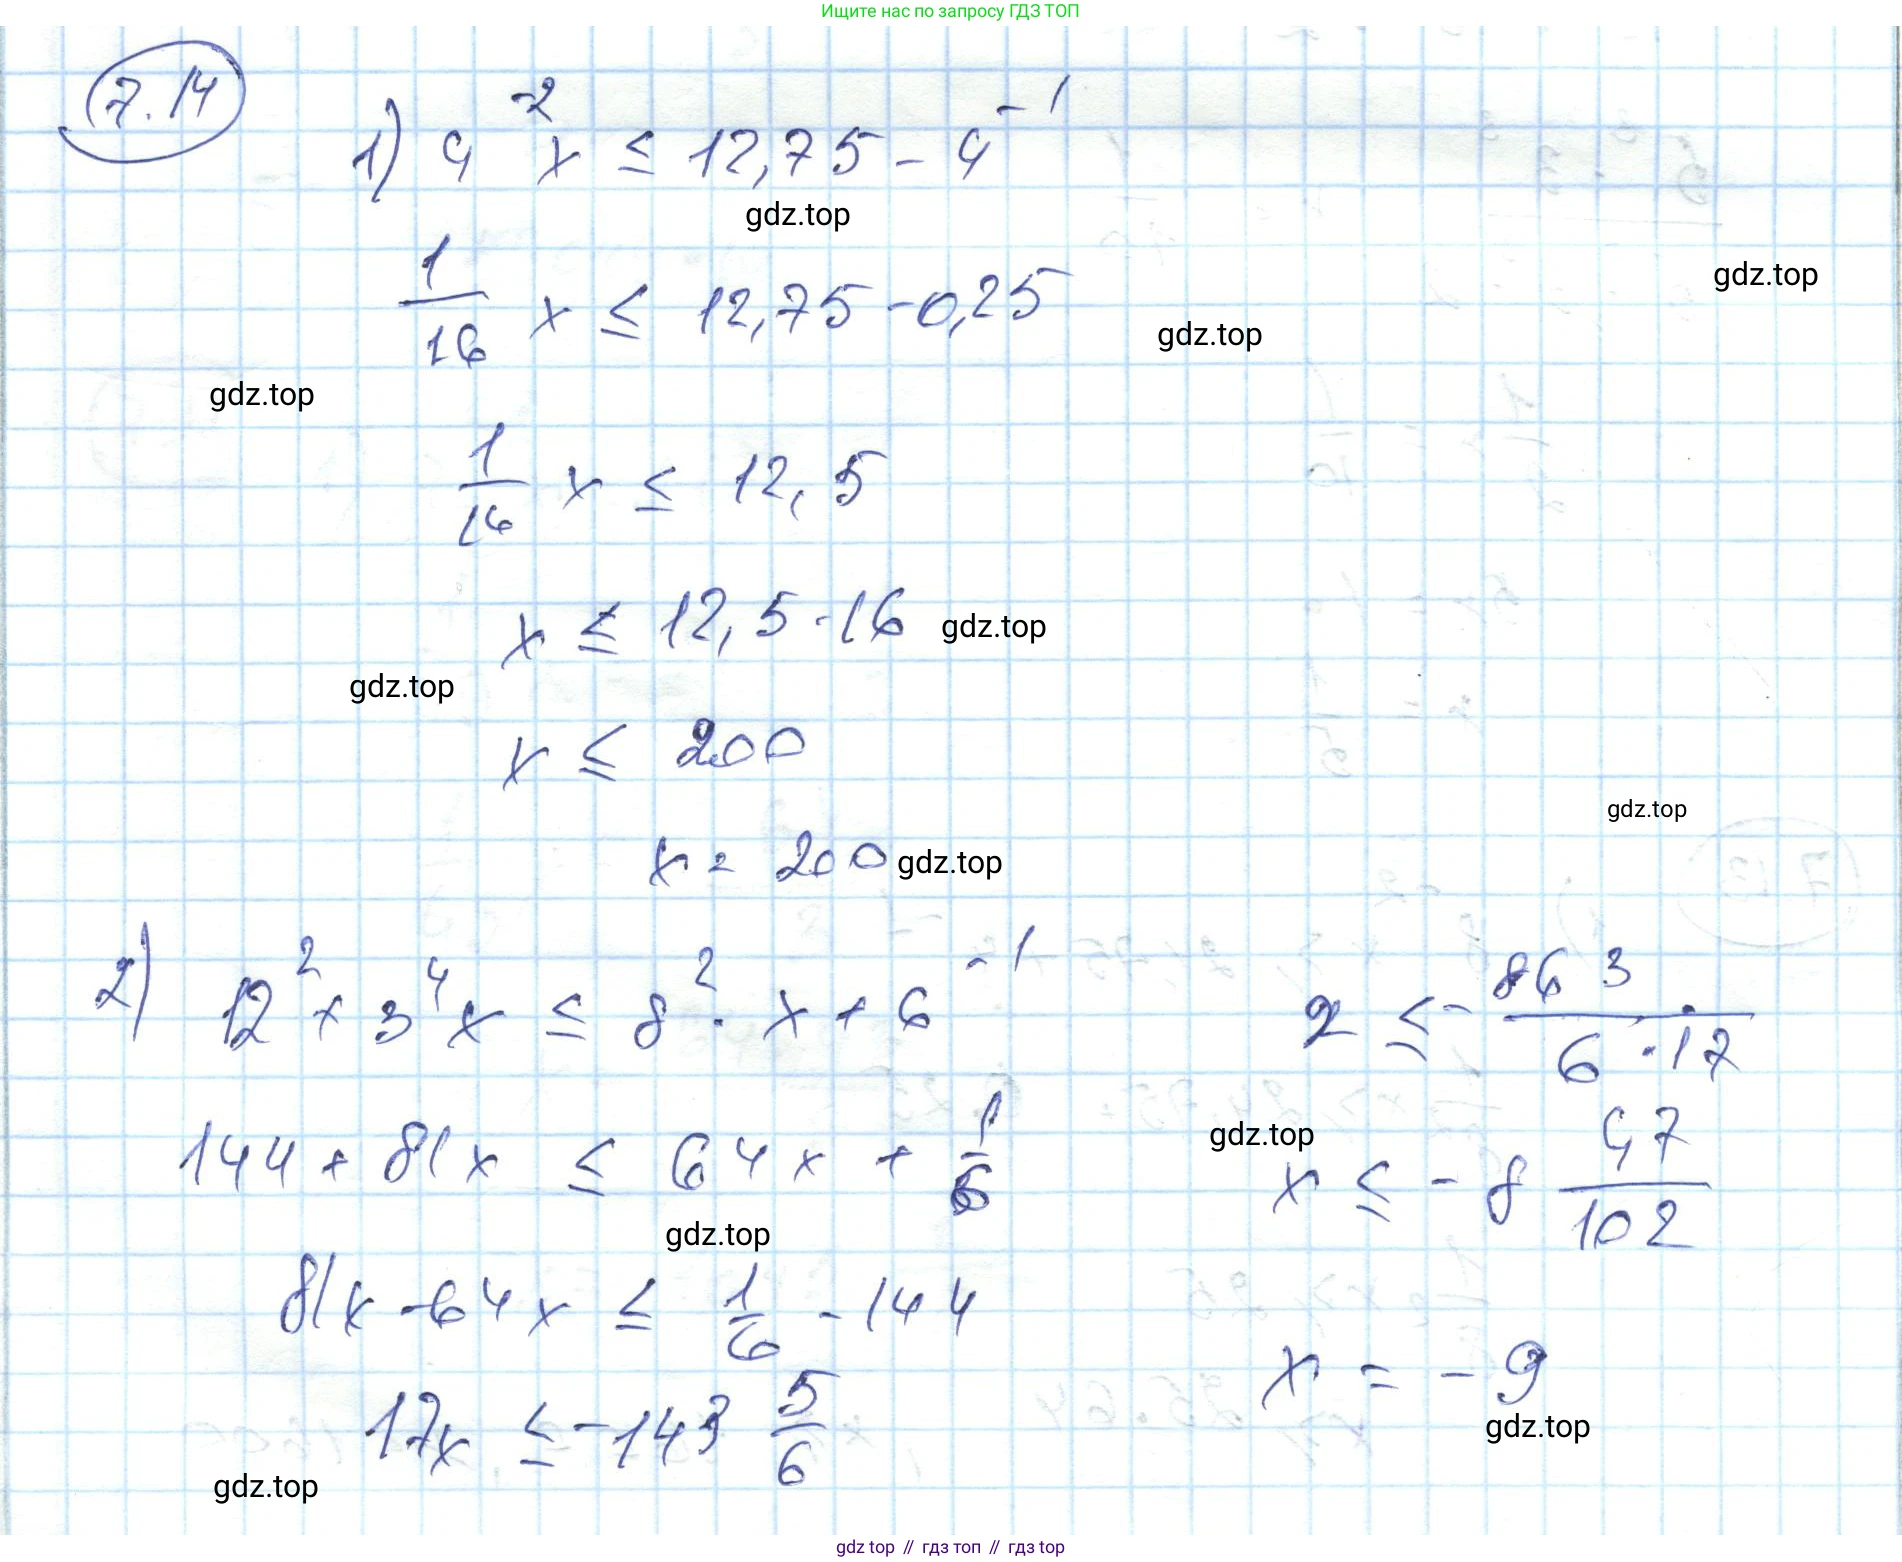 Ищите нас по запросу ГДЗ ТОП
7.14
1) 4⁻²x ≤ 12,75 - 4⁻¹
gdz.top
1/16 x ≤ 12,75 - 0,25
gdz.top
gdz.top
gdz.top
1/16 x ≤ 12,5
x ≤ 12,5 · 16
gdz.top
gdz.top
x ≤ 200
gdz.top
x = 200
gdz.top
2) 12² + 3⁴x ≤ 8² · x + 6⁻¹
144 + 81x ≤ 64x + 1/6
gdz.top
81x - 64x ≤ 1/6 - 144
17x ≤ - 143 5/6
gdz.top
x ≤ - 863/(6 · 17)
gdz.top
x ≤ - 8 47/102
x = - 9
gdz.top
gdz top // гдз топ // гдз top